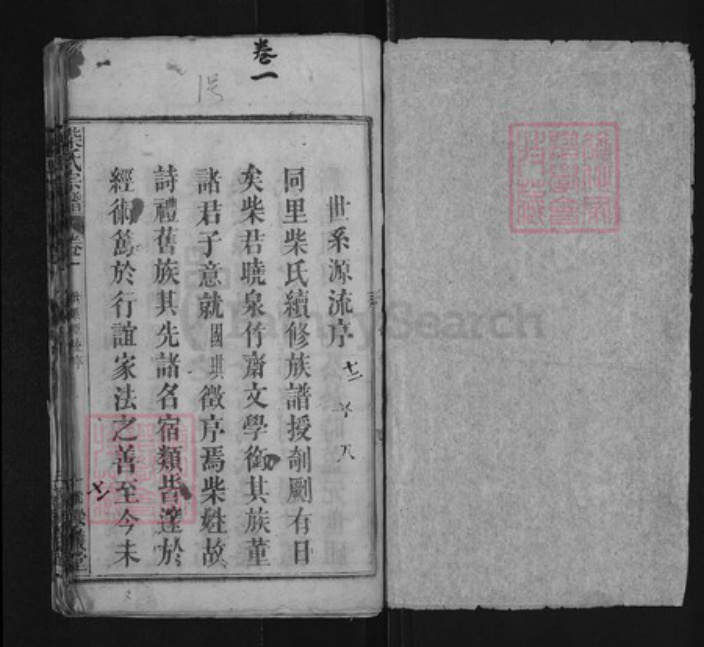 卷一
1号
世系源流序
同里柴氏續修族譜授剞劂有日
矣柴君曉泉竹齋文學銜其族董
諸君子意就國琪徵序焉柴姓故
詩禮舊族其先諸名宿類皆邃於
經術篤於行誼家法之善至今未
柴氏宗譜 卷一
FamilySearch